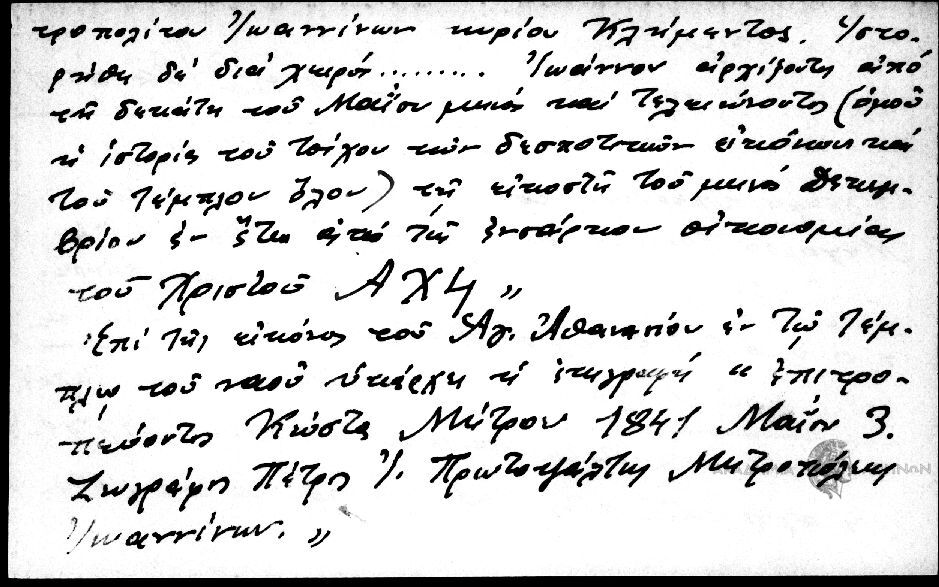 τροπολίτου Ἰωαννίνων κυρίου Κλήμεντος. Ἱστο-
ρήθη δέ διά χειρός......... Ἰωάννου ἀρχίζοντος ἀπό
τῇ δεκάτῃ τοῦ Μαΐου μηνός καί τελειώνοντος (ὁμοῦ
ἡ ἱστορία τοῦ τοίχου τῶν δεσποτικῶν εἰκόνων καί
τοῦ τέμπλου ὅλου) τῇ εἰκοστῇ τοῦ μηνός Δεκεμ-
βρίου ἐν ἔτει ἀπό τῆς ἐνσάρκου οἰκονομίας
τοῦ Χριστοῦ ΑΧϟ "
Ἐπί τῆς εἰκόνος τοῦ Ἁγ. Ἀθανασίου ἐν τῷ τέμ-
πλῳ τοῦ ναοῦ ὑπάρχει ἡ ἐπιγραφή " ἐπιτρο-
πεύοντος Κώστα Μήτρου 1841 Μαΐου 3.
Ζωγράφος Πέτρος Ἰ. Πρωτοψάλτης Μητροπόλεως
Ἰωαννίνων. "